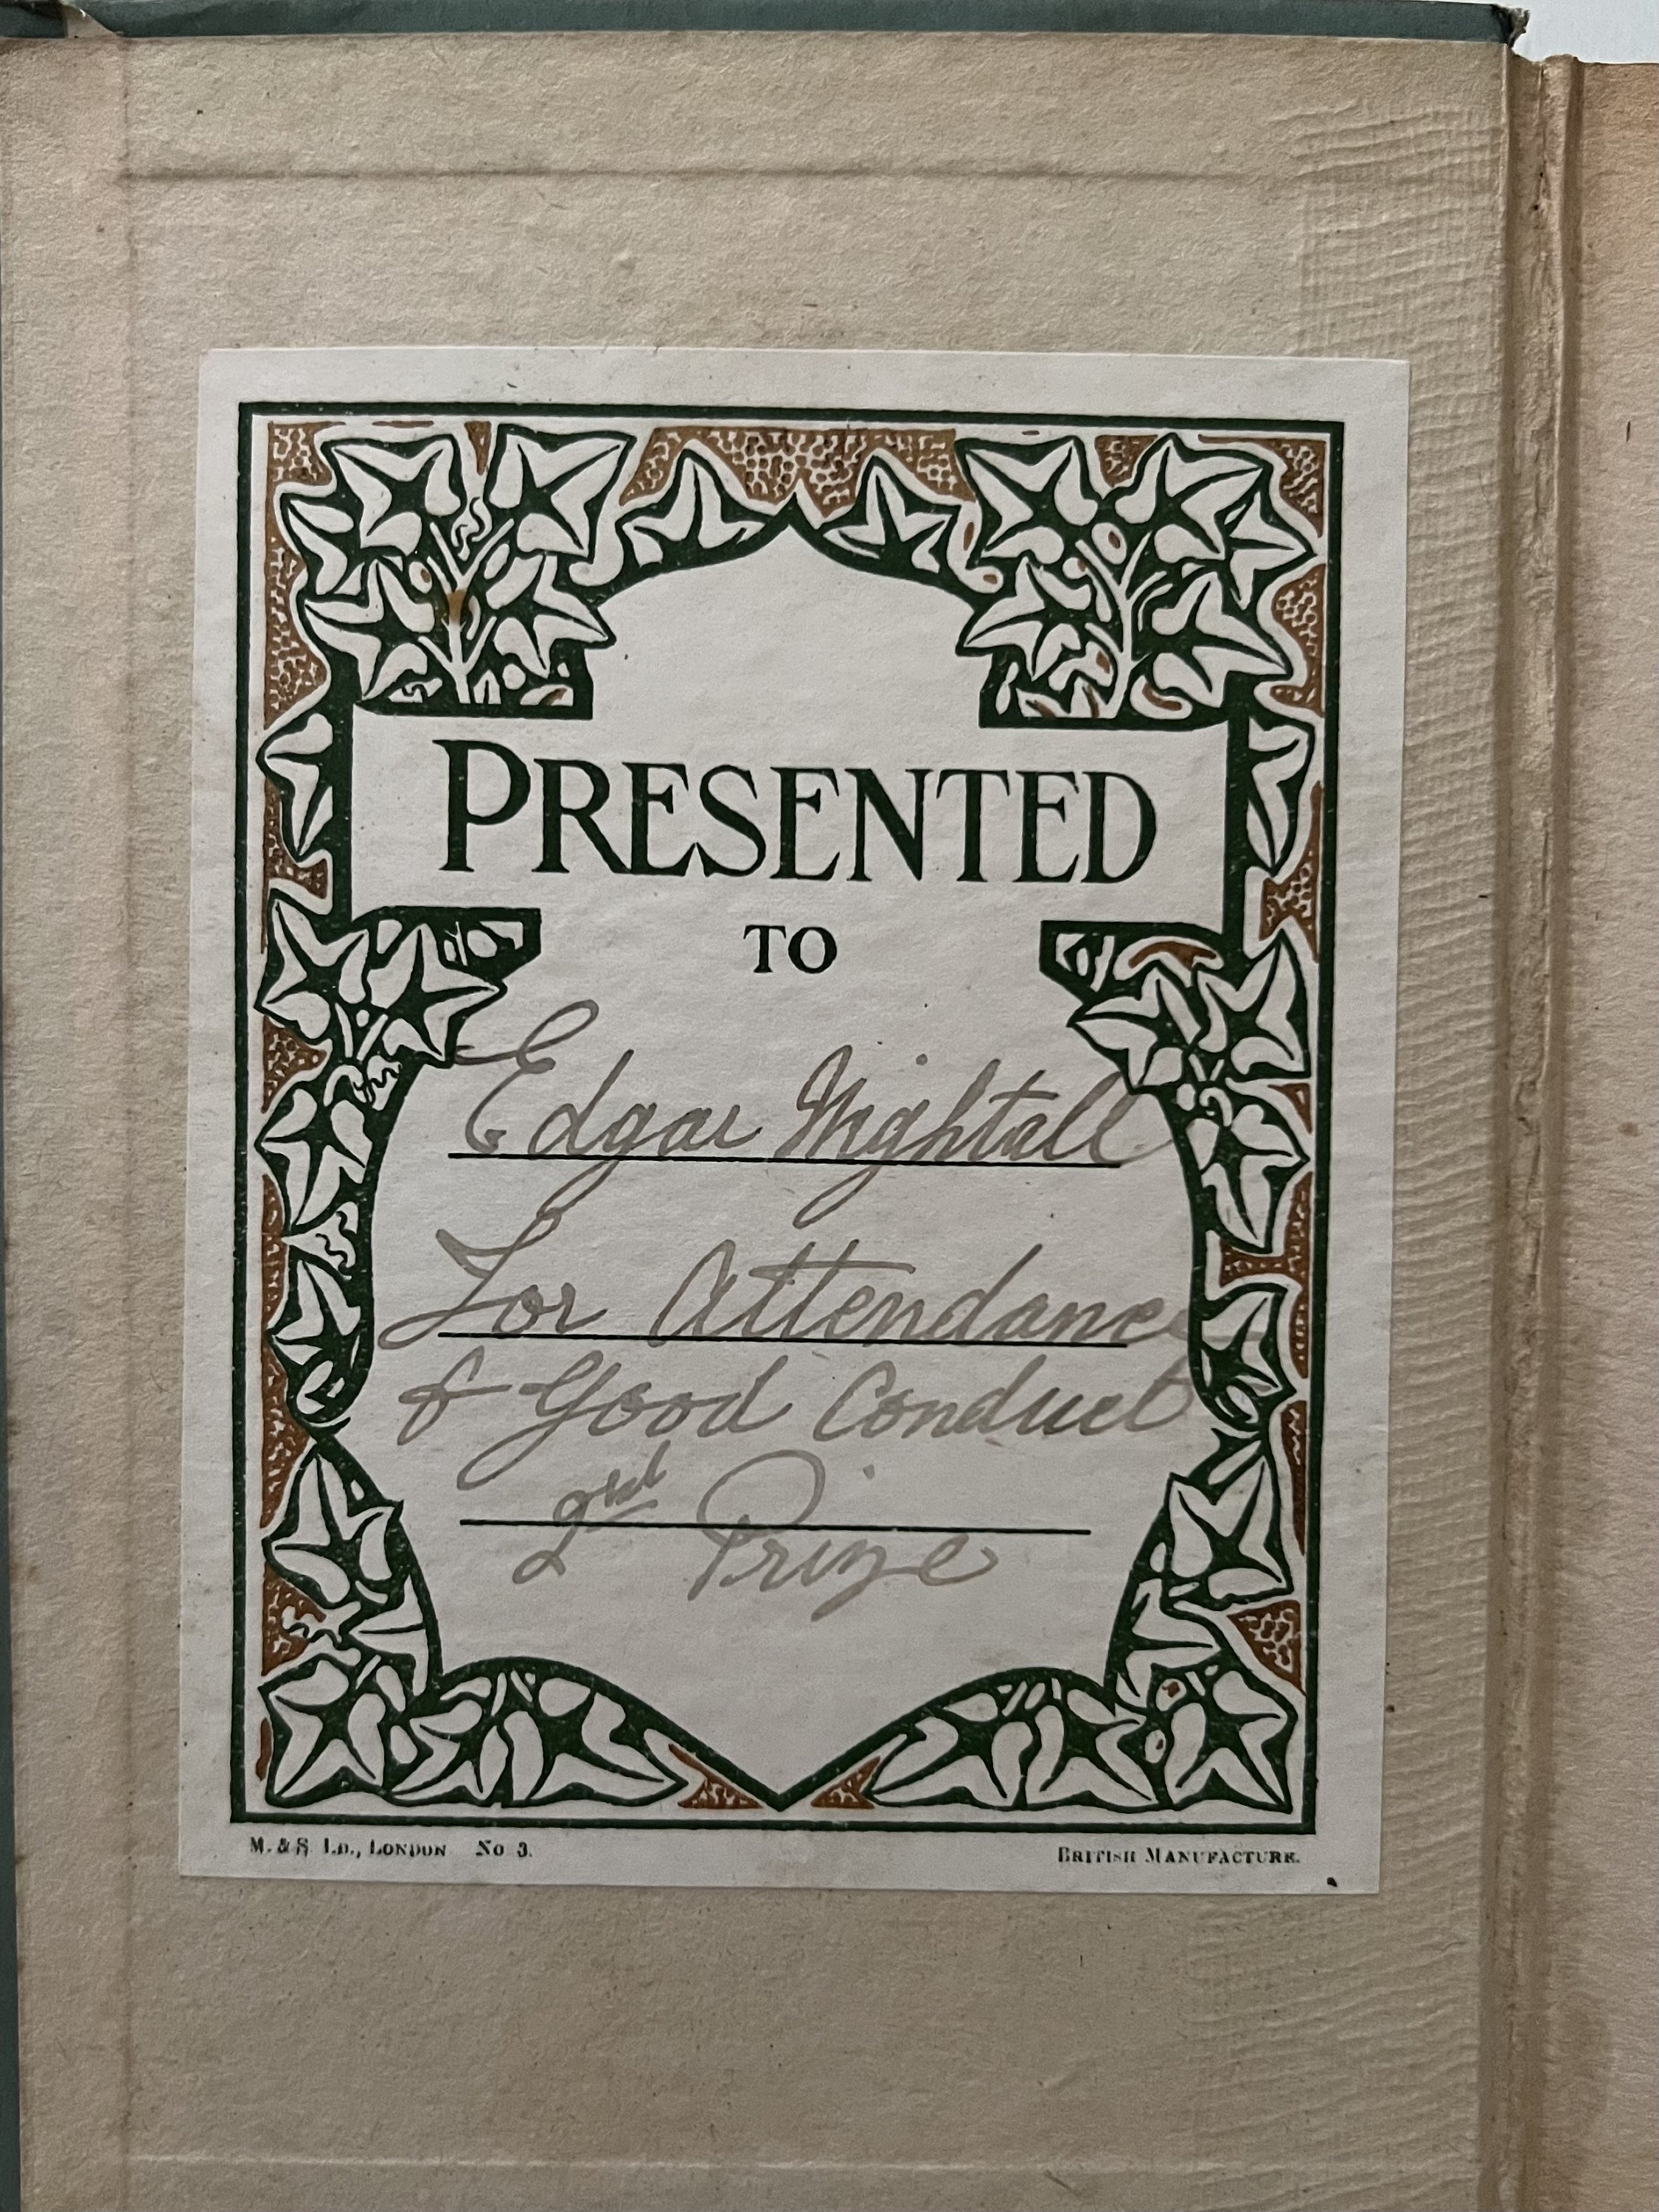 PRESENTED
TO
Edgar Nightall
For Attendance
& Good Conduct
2nd Prize
M. & S. LD., LONDON No 3.
BRITISH MANUFACTURE.